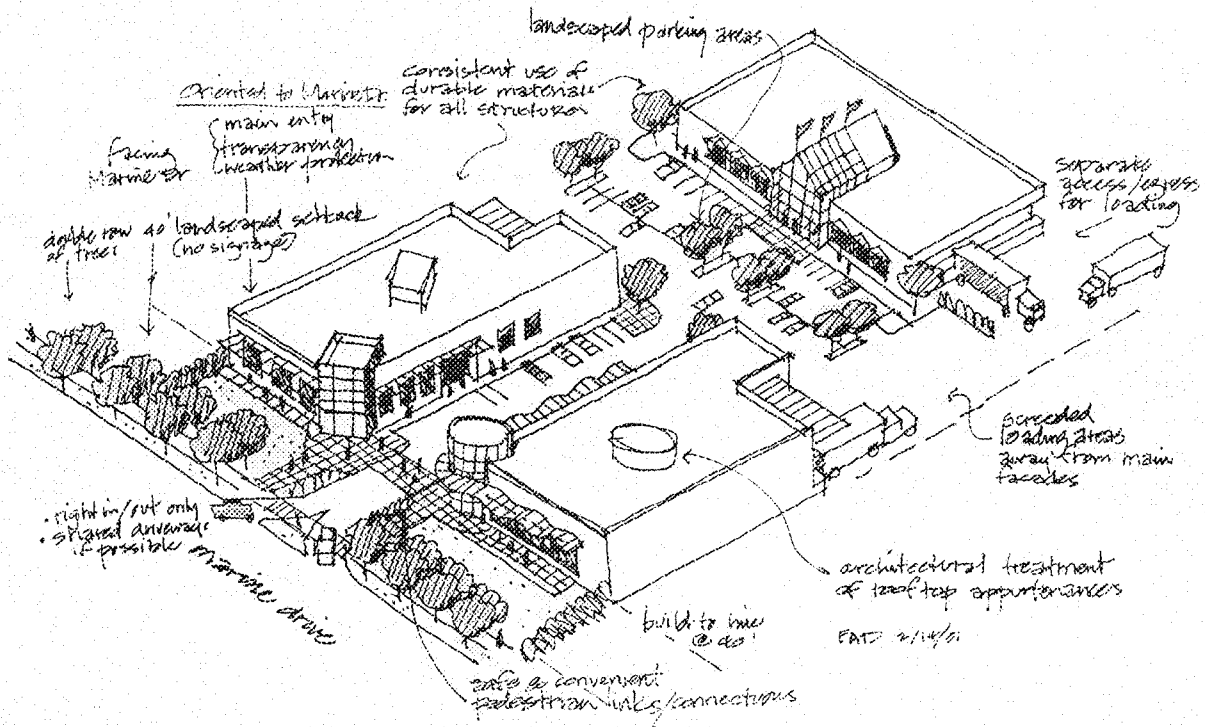 landscaped parking areas
consistent use of
durable materials
for all structures
Oriented to Marine Dr.
main entry
transparency
weather protection
Facing
Marine Dr
double row
of trees
40' landscaped setback
(no signage)
separate
access/egress
for loading
screened
loading areas
away from main
facades
• right in/out only
• shared driveway
if possible
marine drive
architectural treatment
of rooftop appurtenances
build to line
@ 40'
safe & convenient
pedestrian links/connections
2/14/01